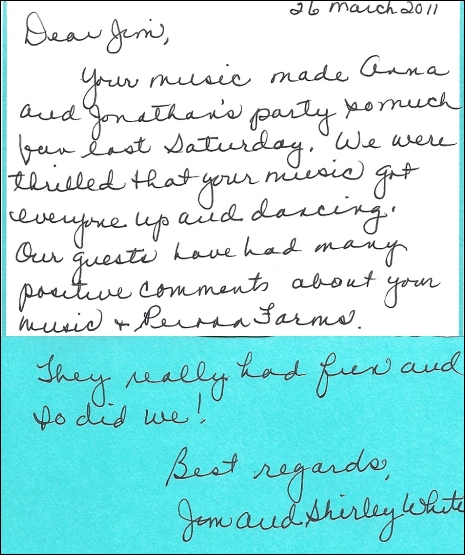 26 March 2011
Dear Jim,
Your music made Anna
and Jonathan's party so much
fun last Saturday. We were
thrilled that your music got
everyone up and dancing.
Our guests have had many
positive comments about your
music & Perona Farms.
They really had fun and
so did we!
Best regards,
Jim and Shirley White